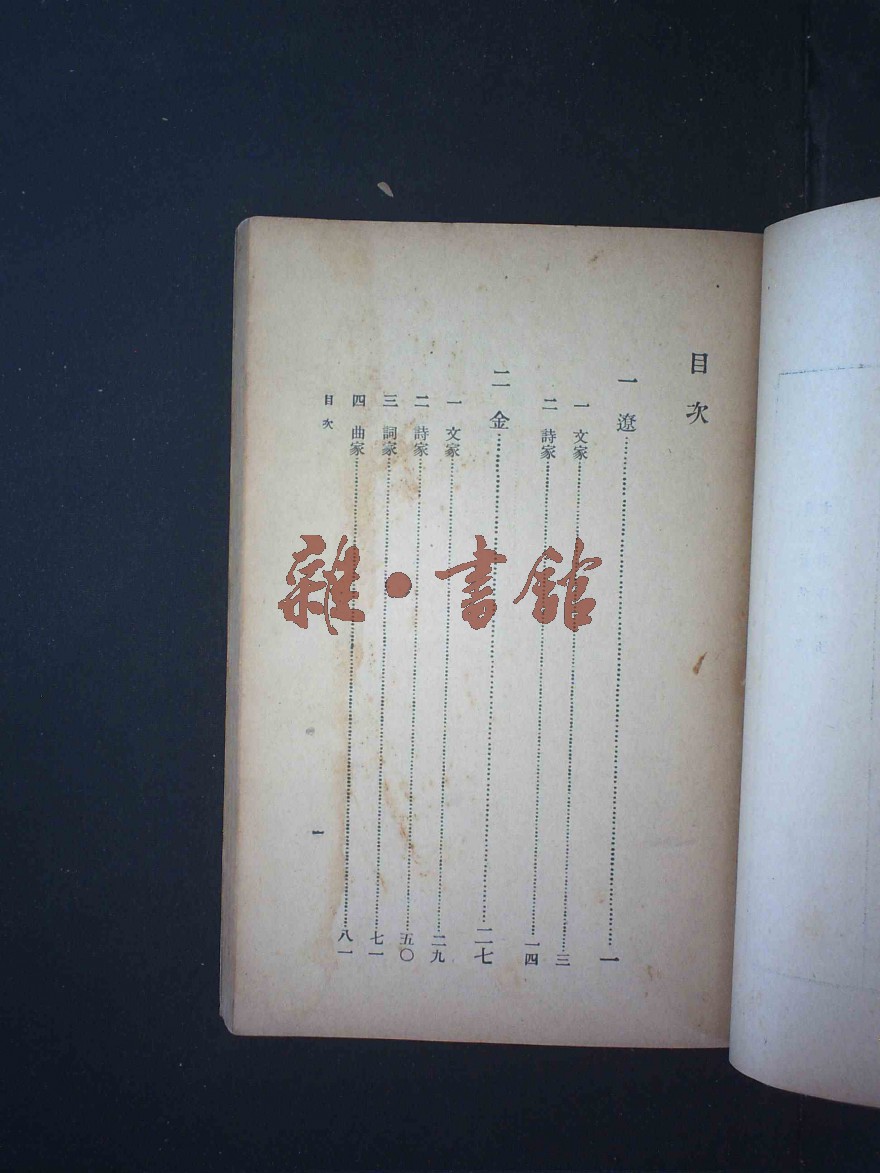 目次
一 遼……一
一 文家……三
二 詩家……一四
二 金……二七
一 文家……二九
二 詩家……五〇
三 詞家……七一
四 曲家……八一
目次
一
雜·書館